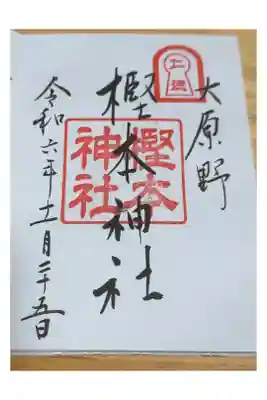 大原野
樫本神社
樫本
神社
令和六年十一月二十五日